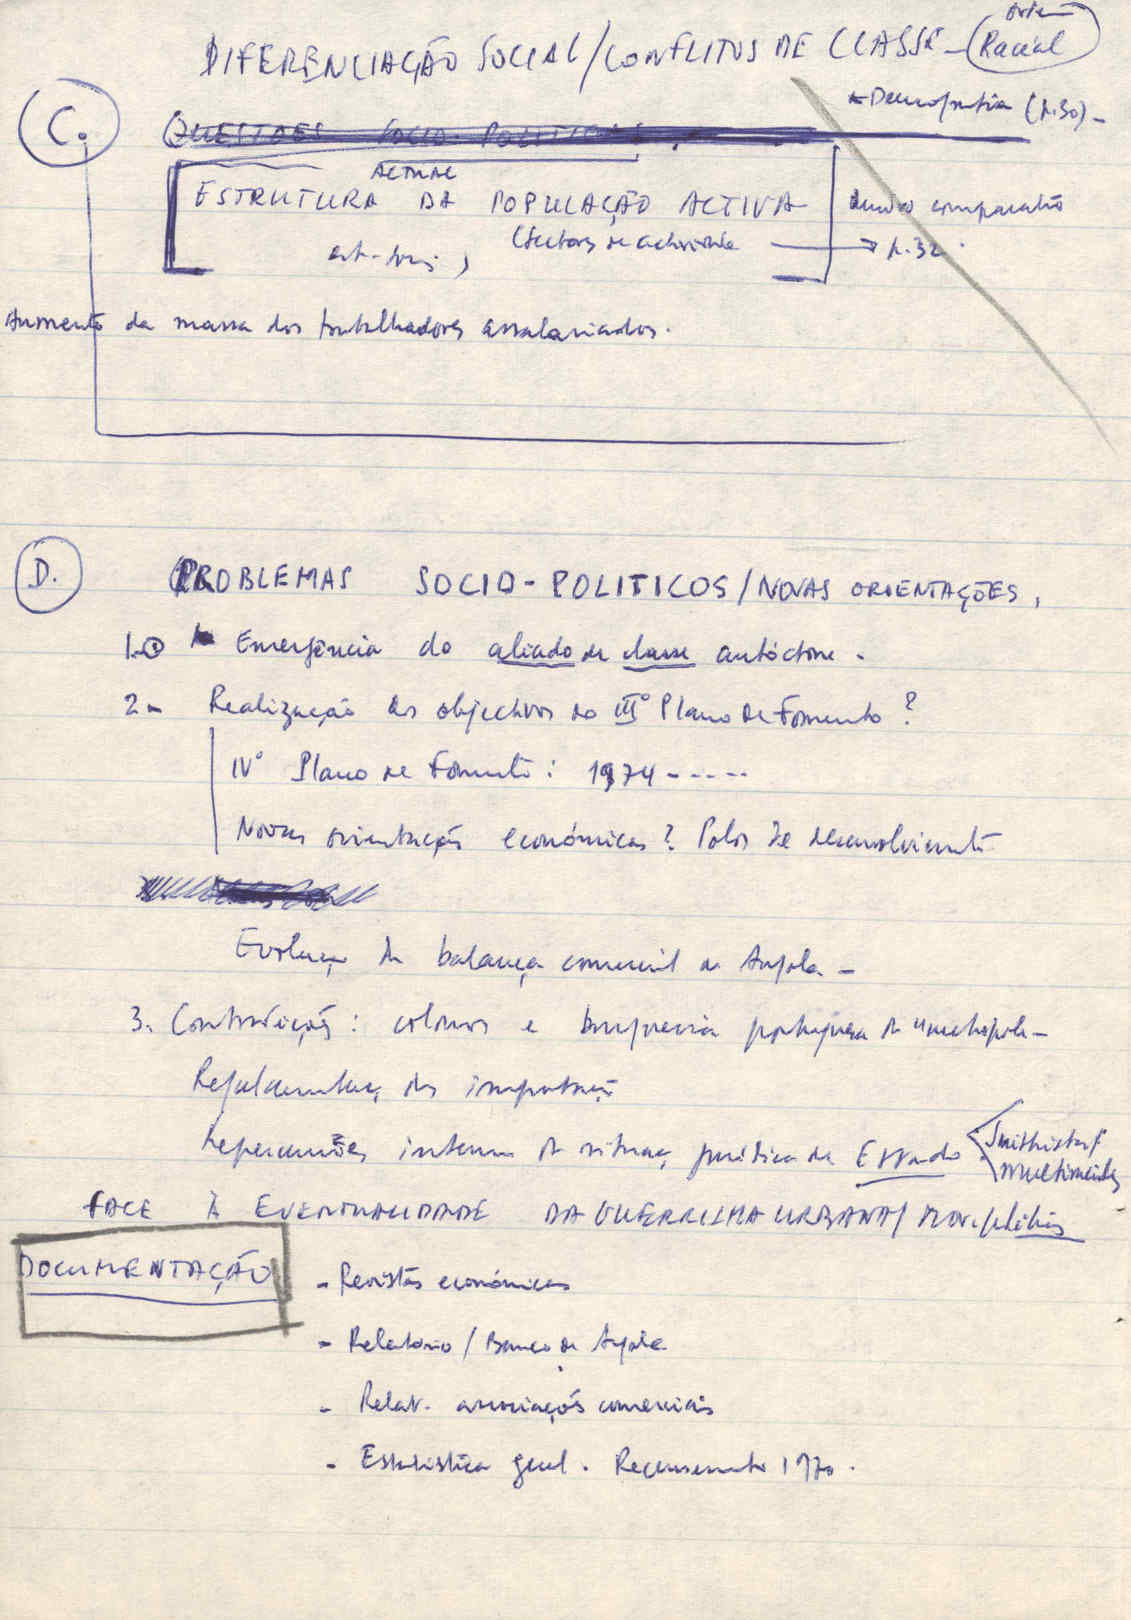 DIFERENCIAÇÃO SOCIAL/CONFLITOS DE CLASSE - Racial
- Demografia (p.30) -
C.
QUESTÕES SOCIO-POLITICAS
ACTUAL
ESTRUTURA DA POPULAÇÃO ACTIVA
comparativo
(sectores de actividade → p.32.
Aumento da massa dos trabalhadores assalariados.
D. PROBLEMAS SOCIO-POLITICOS/NOVAS ORIENTAÇÕES.
1. Emergência do aliado de classe autóctone.
2- Realização dos objectivos do III° Plano de Fomento?
IV° Plano de Fomento: 1974 -----
Novas orientações económicas? Polos de desenvolvimento
Evolução da balança comercial de Angola -
3. Contradições: colonos e burguesia portuguesa da "metropole -
Regulamentação das importações
Repercussões internas da situação jurídica de Estado
multirracial
FACE À EVENTUALIDADE DA GUERRILHA URBANA/
DOCUMENTAÇÃO
- Revistas económicas
- Relatório / Banco de Angola
- Relat. associações comerciais
- Estatística geral. Recenseamento 1970.